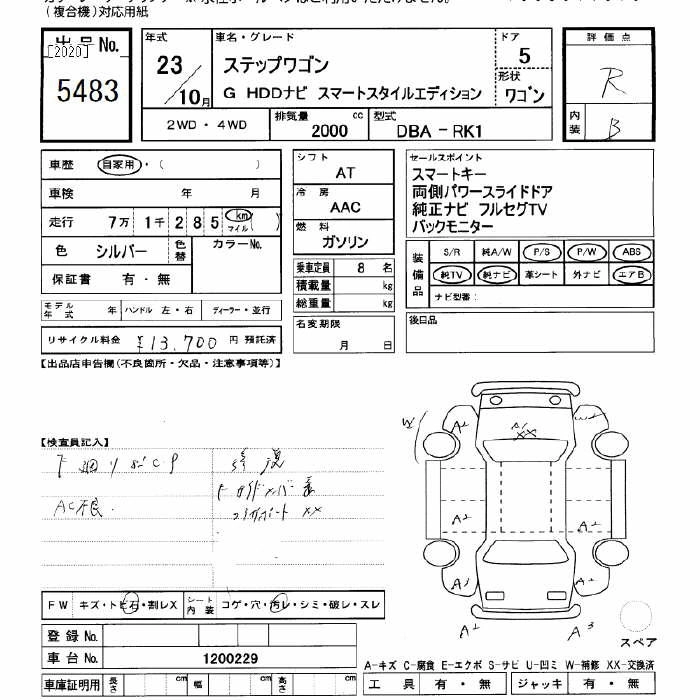 (複合機)対応用紙
出品No.
[2020]
5483
年式
23/10月
車名・グレード
ステップワゴン
G HDDナビ スマートスタイルエディション
ドア
5
形状
ワゴン
評価点
R
内装
B
2WD・4WD
排気量 2000 cc
型式 DBA-RK1
車歴 自家用・( )
車検 年 月
走行 7万 1千 2 8 5 km マイル ( )
色 シルバー 色替 カラーNo.
保証書 有・無
モデル年式 年 ハンドル 左・右 ディーラー・並行
リサイクル料金 ¥13,700 円 預託済
シフト
AT
冷房
AAC
燃料
ガソリン
乗車定員 8 名
積載量 kg
総重量 kg
名変期限
月 日
セールスポイント
スマートキー
両側パワースライドドア
純正ナビ フルセグTV
バックモニター
装備品
S/R 純A/W P/S P/W ABS
純TV 純ナビ 革シート 外ナビ エアB
ナビ型番:
後日品
【出品店申告欄(不良箇所・欠品・注意事項等)】
【検査員記入】
AC不良
XX
A1
XX
W
A2
A2
A2
A2
A2
A3
FW キズ・トビ石・割レX
シート内装 コゲ・穴・汚レ・シミ・破レ・スレ
登録No.
車台No. 1200229
車庫証明用 長さ cm 幅 cm 高さ cm
スペア
A-キズ C-腐食 E-エクボ S-サビ U-凹ミ W-補修 XX-交換済
工具 有・無 ジャッキ 有・無